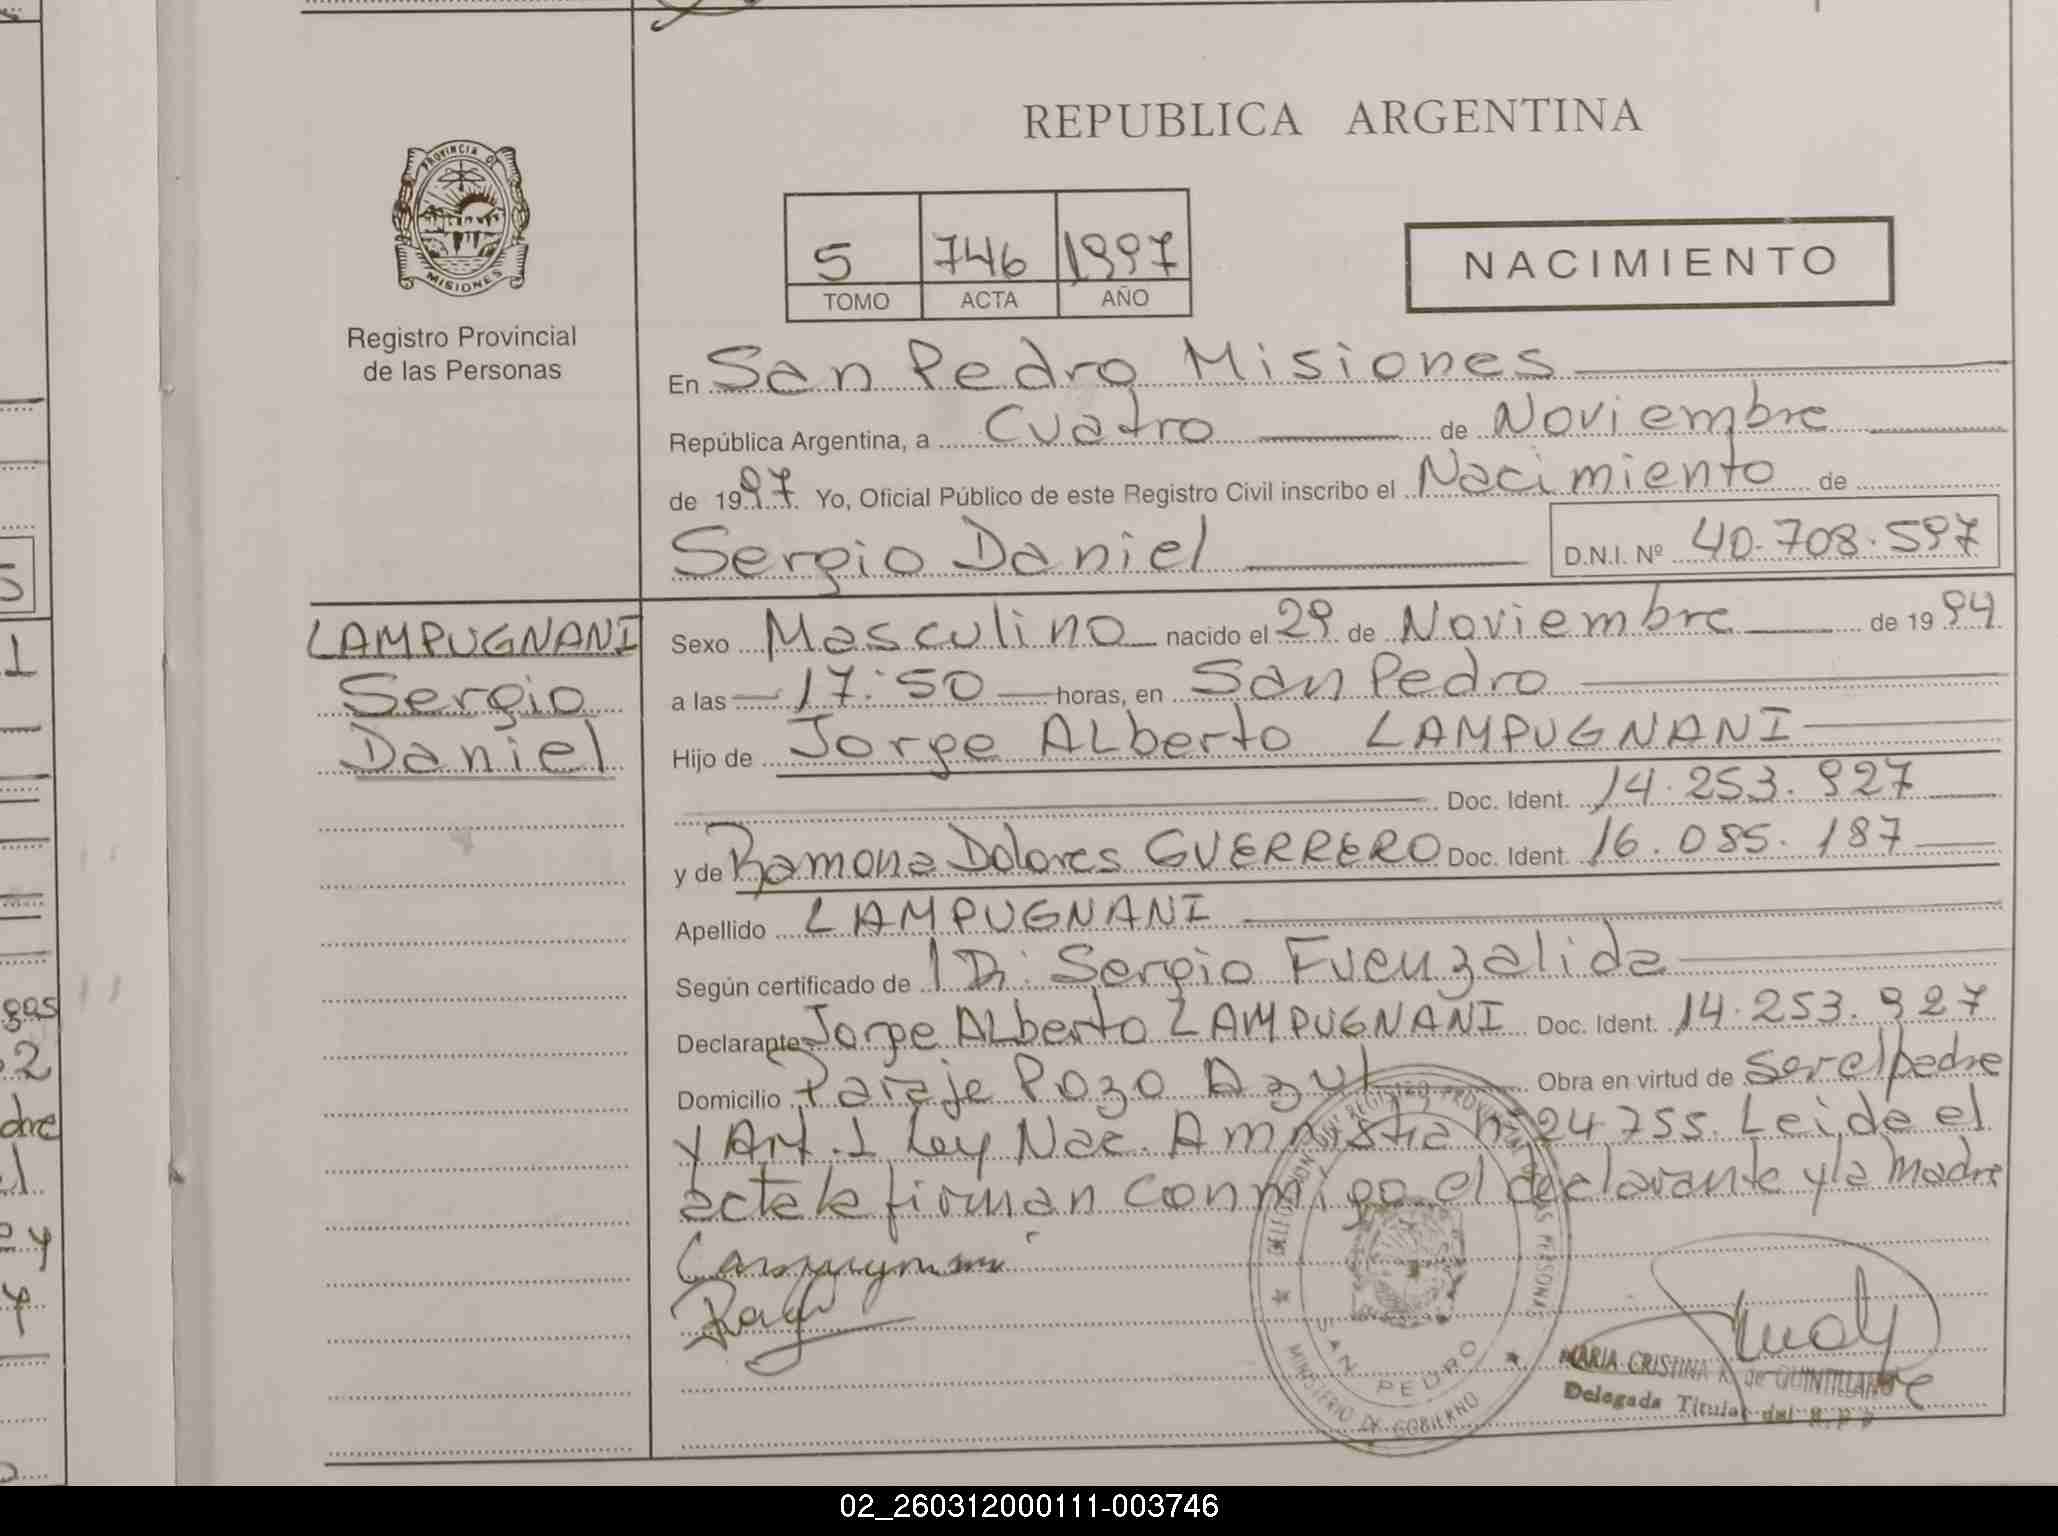 REPUBLICA ARGENTINA
PROVINCIA DE
MISIONES
Registro Provincial
de las Personas
5 746 1997
TOMO ACTA AÑO
NACIMIENTO
En San Pedro Misiones
República Argentina, a Cuatro de Noviembre
de 1997. Yo, Oficial Público de este Registro Civil inscribo el Nacimiento de
Sergio Daniel D.N.I. Nº 40.708.597
LAMPUGNANI
Sergio
Daniel
Sexo Masculino nacido el 29 de Noviembre de 1994
a las 17:50 horas, en San Pedro
Hijo de Jorge Alberto LAMPUGNANI
Doc. Ident. 14.253.927
y de Ramona Dolores GUERRERO Doc. Ident. 16.085.187
Apellido LAMPUGNANI
Según certificado de Sergio Fuenzalida
Declarante Jorge Alberto LAMPUGNANI Doc. Ident. 14.253.927
Domicilio Paraje Pozo Azul Obra en virtud de ser el padre
y Art. 1 Ley Nac. Amnistia nº 24.755. Leida el
acta la firman conmigo el declarante y la madre
SAN PEDRO
MINISTERIO DE GOBIERNO
MARIA CRISTINA K. de QUINTILLAN
Delegada Titular del R.P.P
02_260312000111-003746